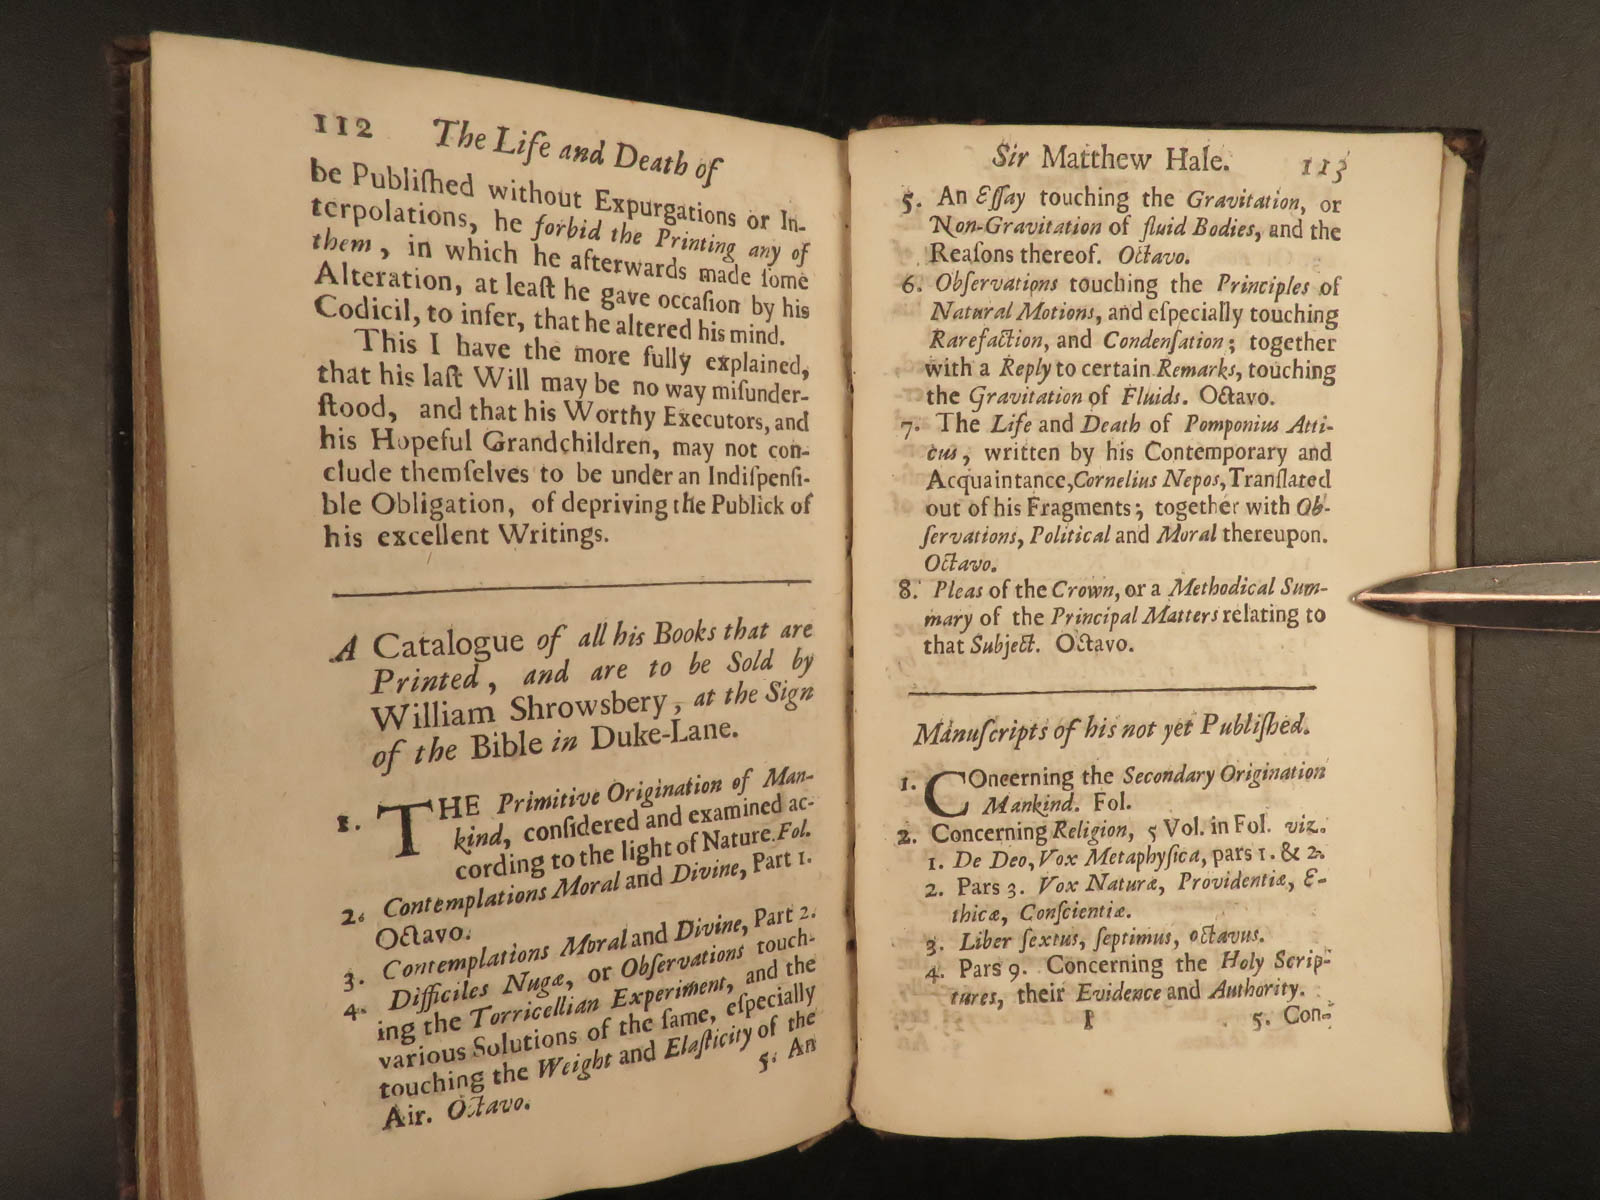 112 The Life and Death of
be Publiſhed without Expurgations or In-
terpolations, he forbid the Printing any of
them, in which he afterwards made ſome
Alteration, at leaſt he gave occaſion by his
Codicil, to infer, that he altered his mind.
This I have the more fully explained,
that his laſt Will may be no way miſunder-
ſtood, and that his Worthy Executors, and
his Hopeful Grandchildren, may not con-
clude themſelves to be under an Indiſpenſi-
ble Obligation, of depriving the Publick of
his excellent Writings.
A Catalogue of all his Books that are
Printed, and are to be Sold by
William Shrowsbery, at the Sign
of the Bible in Duke-Lane.
1. THE Primitive Origination of Man-
kind, conſidered and examined ac-
cording to the light of Nature. Fol.
2. Contemplations Moral and Divine, Part 1.
Octavo.
3. Contemplations Moral and Divine, Part 2.
4. Difficiles Nugæ, or Obſervations touch-
ing the Torricellian Experiment, and the
various Solutions of the ſame, eſpecially
touching the Weight and Elaſticity of the
Air. Octavo.
5. An
Sir Matthew Hale. 113
5. An Eſſay touching the Gravitation, or
Non-Gravitation of fluid Bodies, and the
Reaſons thereof. Octavo.
6. Obſervations touching the Principles of
Natural Motions, and eſpecially touching
Rarefaction, and Condenſation; together
with a Reply to certain Remarks, touching
the Gravitation of Fluids. Octavo.
7. The Life and Death of Pomponius Atti-
cus, written by his Contemporary and
Acquaintance, Cornelius Nepos, Tranſlated
out of his Fragments; together with Ob-
ſervations, Political and Moral thereupon.
Octavo.
8. Pleas of the Crown, or a Methodical Sum-
mary of the Principal Matters relating to
that Subject. Octavo.
Manuſcripts of his not yet Publiſhed.
1. COncerning the Secondary Origination
Mankind. Fol.
2. Concerning Religion, 5 Vol. in Fol. viz.
1. De Deo, Vox Metaphyſica, pars 1. & 2.
2. Pars 3. Vox Naturæ, Providentiæ, E-
thicæ, Conſcientiæ.
3. Liber ſextus, ſeptimus, octavus.
4. Pars 9. Concerning the Holy Scrip-
tures, their Evidence and Authority.
I 5. Con-